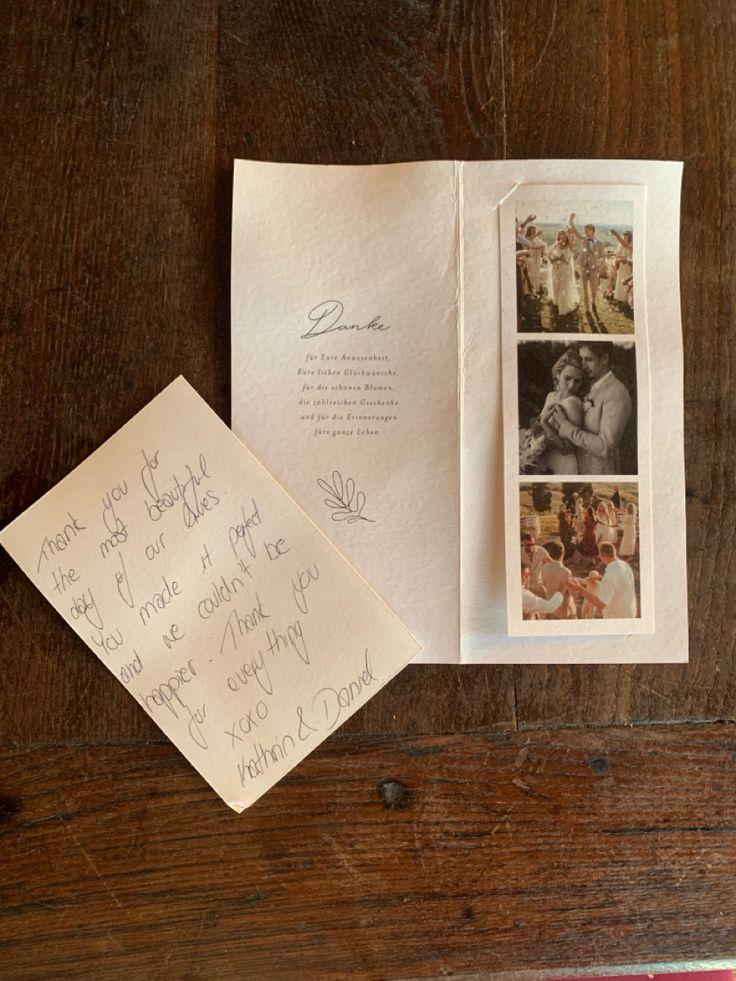 Danke
für Eure Anwesenheit,
Eure lieben Glückwünsche,
für die schönen Blumen,
die zahlreichen Geschenke
und für die Erinnerungen
fürs ganze Leben.
Thank you for
the most beautiful
day of our lives.
You made it perfect
and we couldn't be
happier. Thank you
for everything
xoxo
Kathrin & Daniel